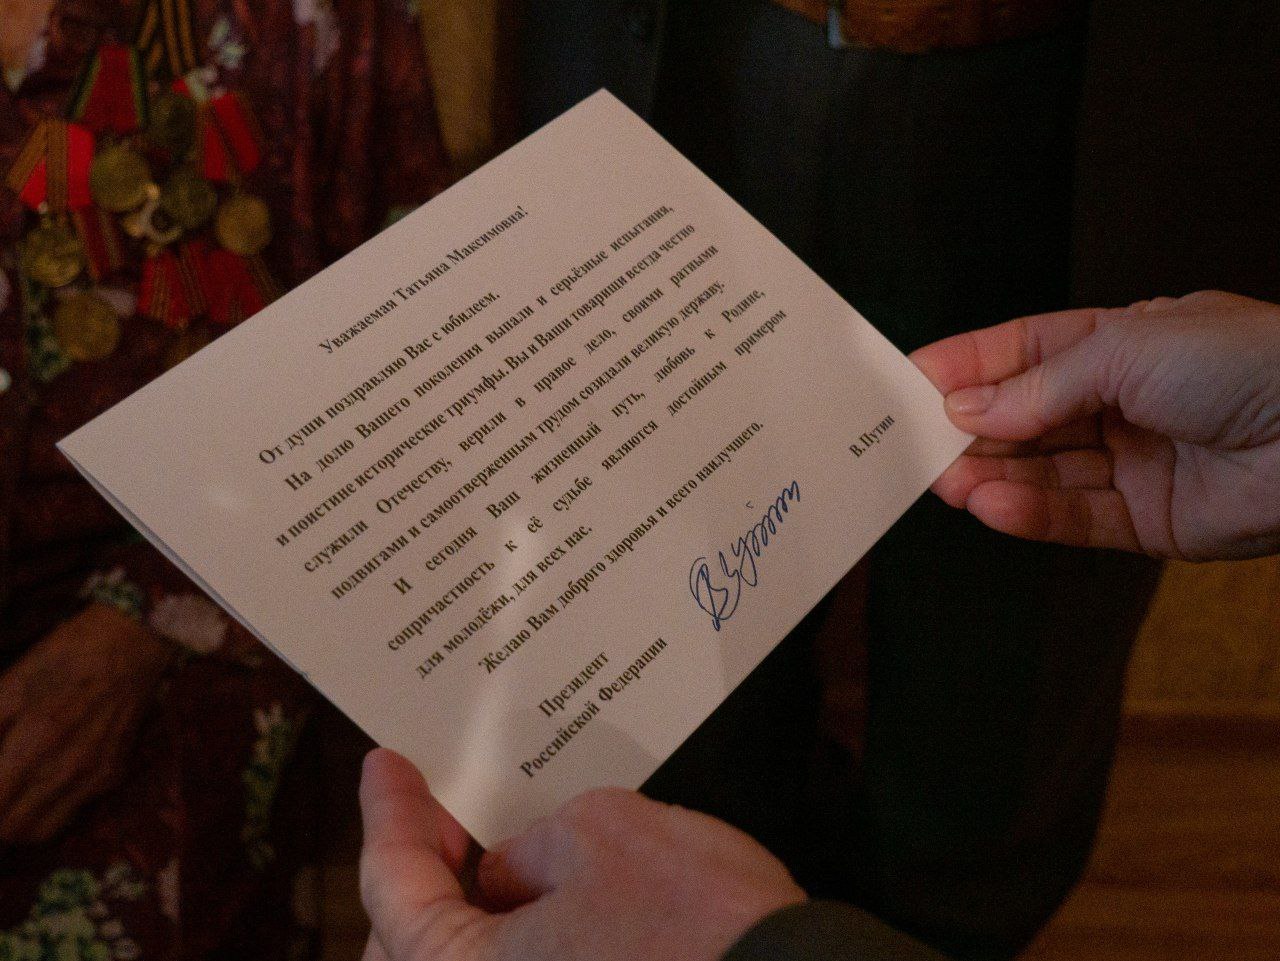 Уважаемая Татьяна Максимовна!
От души поздравляю Вас с юбилеем.
На долю Вашего поколения выпали и серьёзные испытания,
и поистине исторические триумфы. Вы и Ваши товарищи всегда честно
служили Отечеству, верили в правое дело, своими ратными
подвигами и самоотверженным трудом созидали великую державу.
И сегодня Ваш жизненный путь, любовь к Родине,
сопричастность к её судьбе являются достойным примером
для молодёжи, для всех нас.
Желаю Вам доброго здоровья и всего наилучшего.
Президент
Российской Федерации
В.Путин